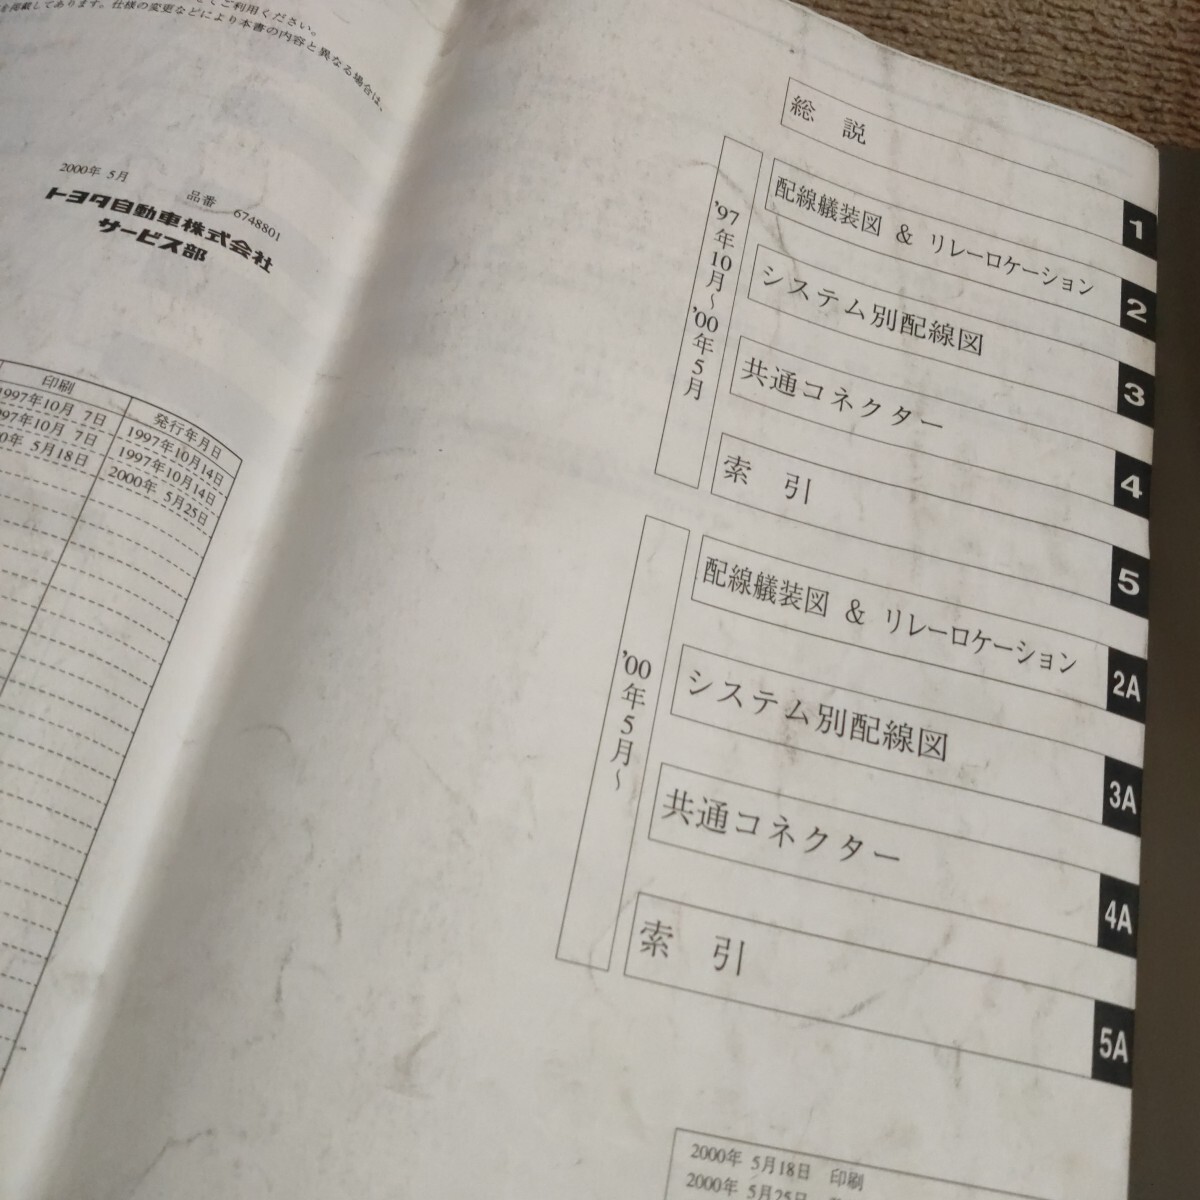 てご利用ください。
を掲載してあります。仕様の変更などにより本書の内容と異なる場合は、
2000年 5月
品番 6748801
トヨタ自動車株式会社
サービス部
印刷 発行年月日
1997年10月 7日 1997年10月14日
1997年10月 7日 1997年10月14日
年 5月18日 2000年 5月25日
総 説 1
'97年10月～'00年5月
配線艤装図 & リレーロケーション 2
システム別配線図 3
共通コネクター 4
索 引 5
'00年5月～
配線艤装図 & リレーロケーション 2A
システム別配線図 3A
共通コネクター 4A
索 引 5A
2000年 5月18日 印刷
2000年 5月25日